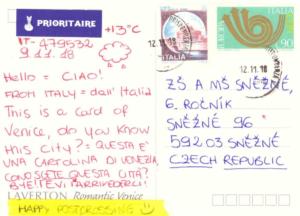 PRIORITAIRE
+13°C
IT-479532
9.11.18
Hello = CIAO!
FROM ITALY = dall'Italia
This is a card of
Venice, do you know
this city? = QUESTA È
UNA CARTOLINA DI VENEZIA,
CONOSCETE QUESTA CITÀ?
BYE! = ARRIVEDERCI!
LAVERTON Romantic Venice
HAPPY POSTCROSSING
ITALIA
12.11.18
EUROPA
ITALIA
90
12.11.18
ZŠ A MŠ SNĚŽNÉ,
6. ROČNÍK
SNĚŽNÉ 96
59203 SNĚŽNÉ
CZECH REPUBLIC